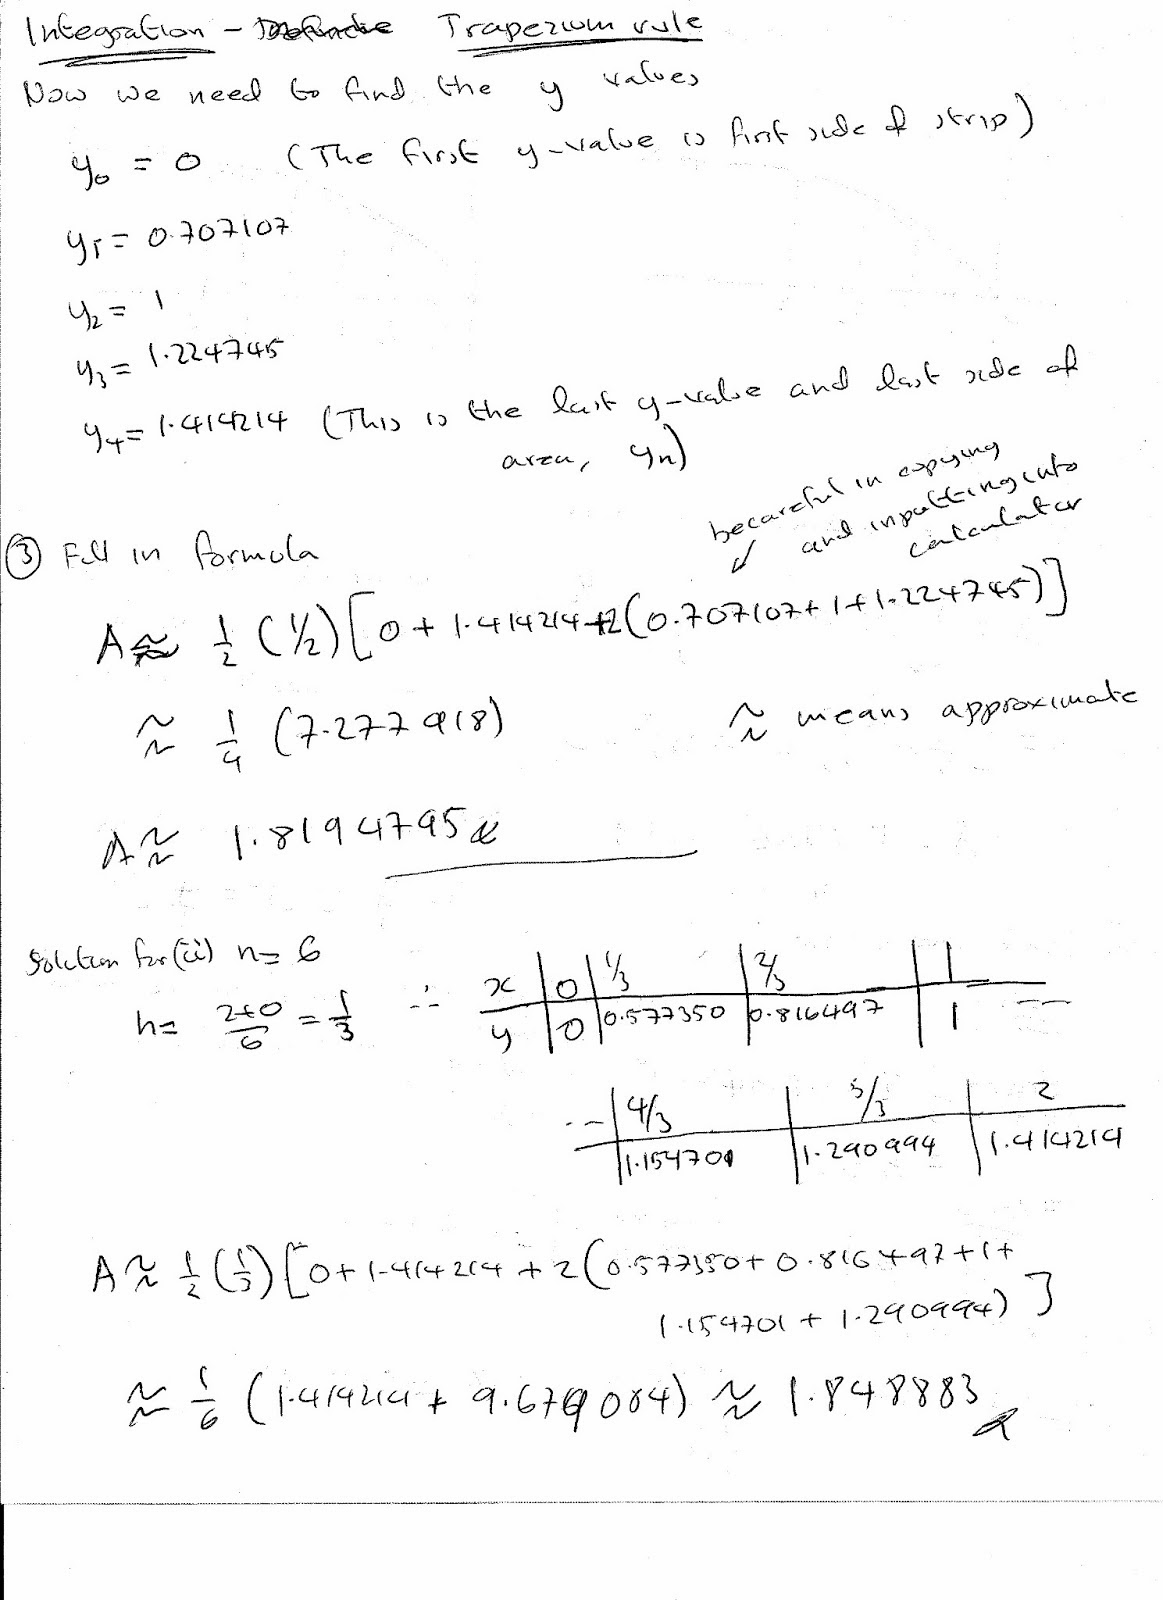 Integration - Trapezium rule
Now we need to find the y values
y₀ = 0 (The first y-value is first side of strip)
y₁ = 0.707107
y₂ = 1
y₃ = 1.224745
y₄ = 1.414214 (This is the last y-value and last side of
area, yn)
becareful in copying
and inputting into
calculator
③ Fill in formula
A ≈ 1/2 (1/2) [0 + 1.414214 + 2(0.707107 + 1 + 1.224745)]
≈ 1/4 (7.277918)
≈ means approximate
A ≈ 1.8194795
Solution for (ii) n = 6
h = 2+0/6 = 1/3 ∴
x | 0 | 1/3 | 2/3 | 1 --
y | 0 | 0.577350 | 0.816497 | 1
-- | 4/3 | 5/3 | 2
| 1.154701 | 1.290994 | 1.414214
A ≈ 1/2 (1/3) [0 + 1.414214 + 2(0.577350 + 0.816497 + 1 +
1.154701 + 1.290994)]
≈ 1/6 (1.414214 + 9.679084) ≈ 1.848883